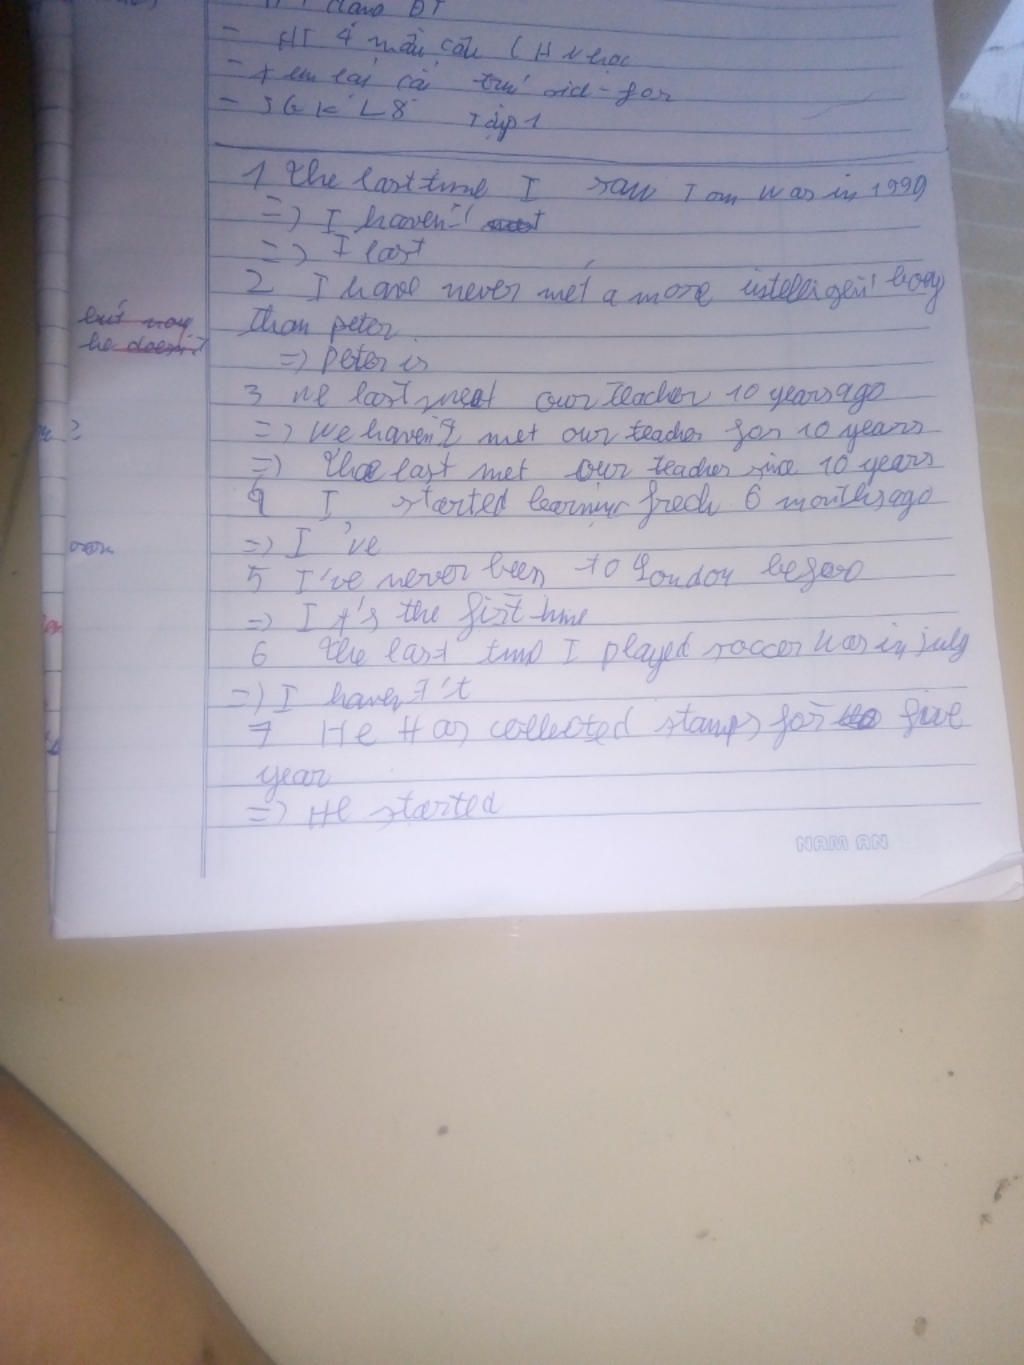 dạng ĐT
- HT 4 mẫu câu (H
- sid - for
- SGK L8 Tập 1
1 The last time I saw Tom was in 1990
=> I haven't
=> I last
2 I have never met a more intelligent boy
but now
than peter.
he doesn't
=> peter is
3 we last meet our teacher 10 years ago
=> We haven't met our teacher for 10 years
=> The last met our teacher since 10 years
4 I started learning frech 6 months ago
=> I 've
5 I've never been to London before
=> It's the first time
6 The last time I played soccer was in july
=> I haven't't
7 He Has collected stamps for five
year
=> He started
NAM AN